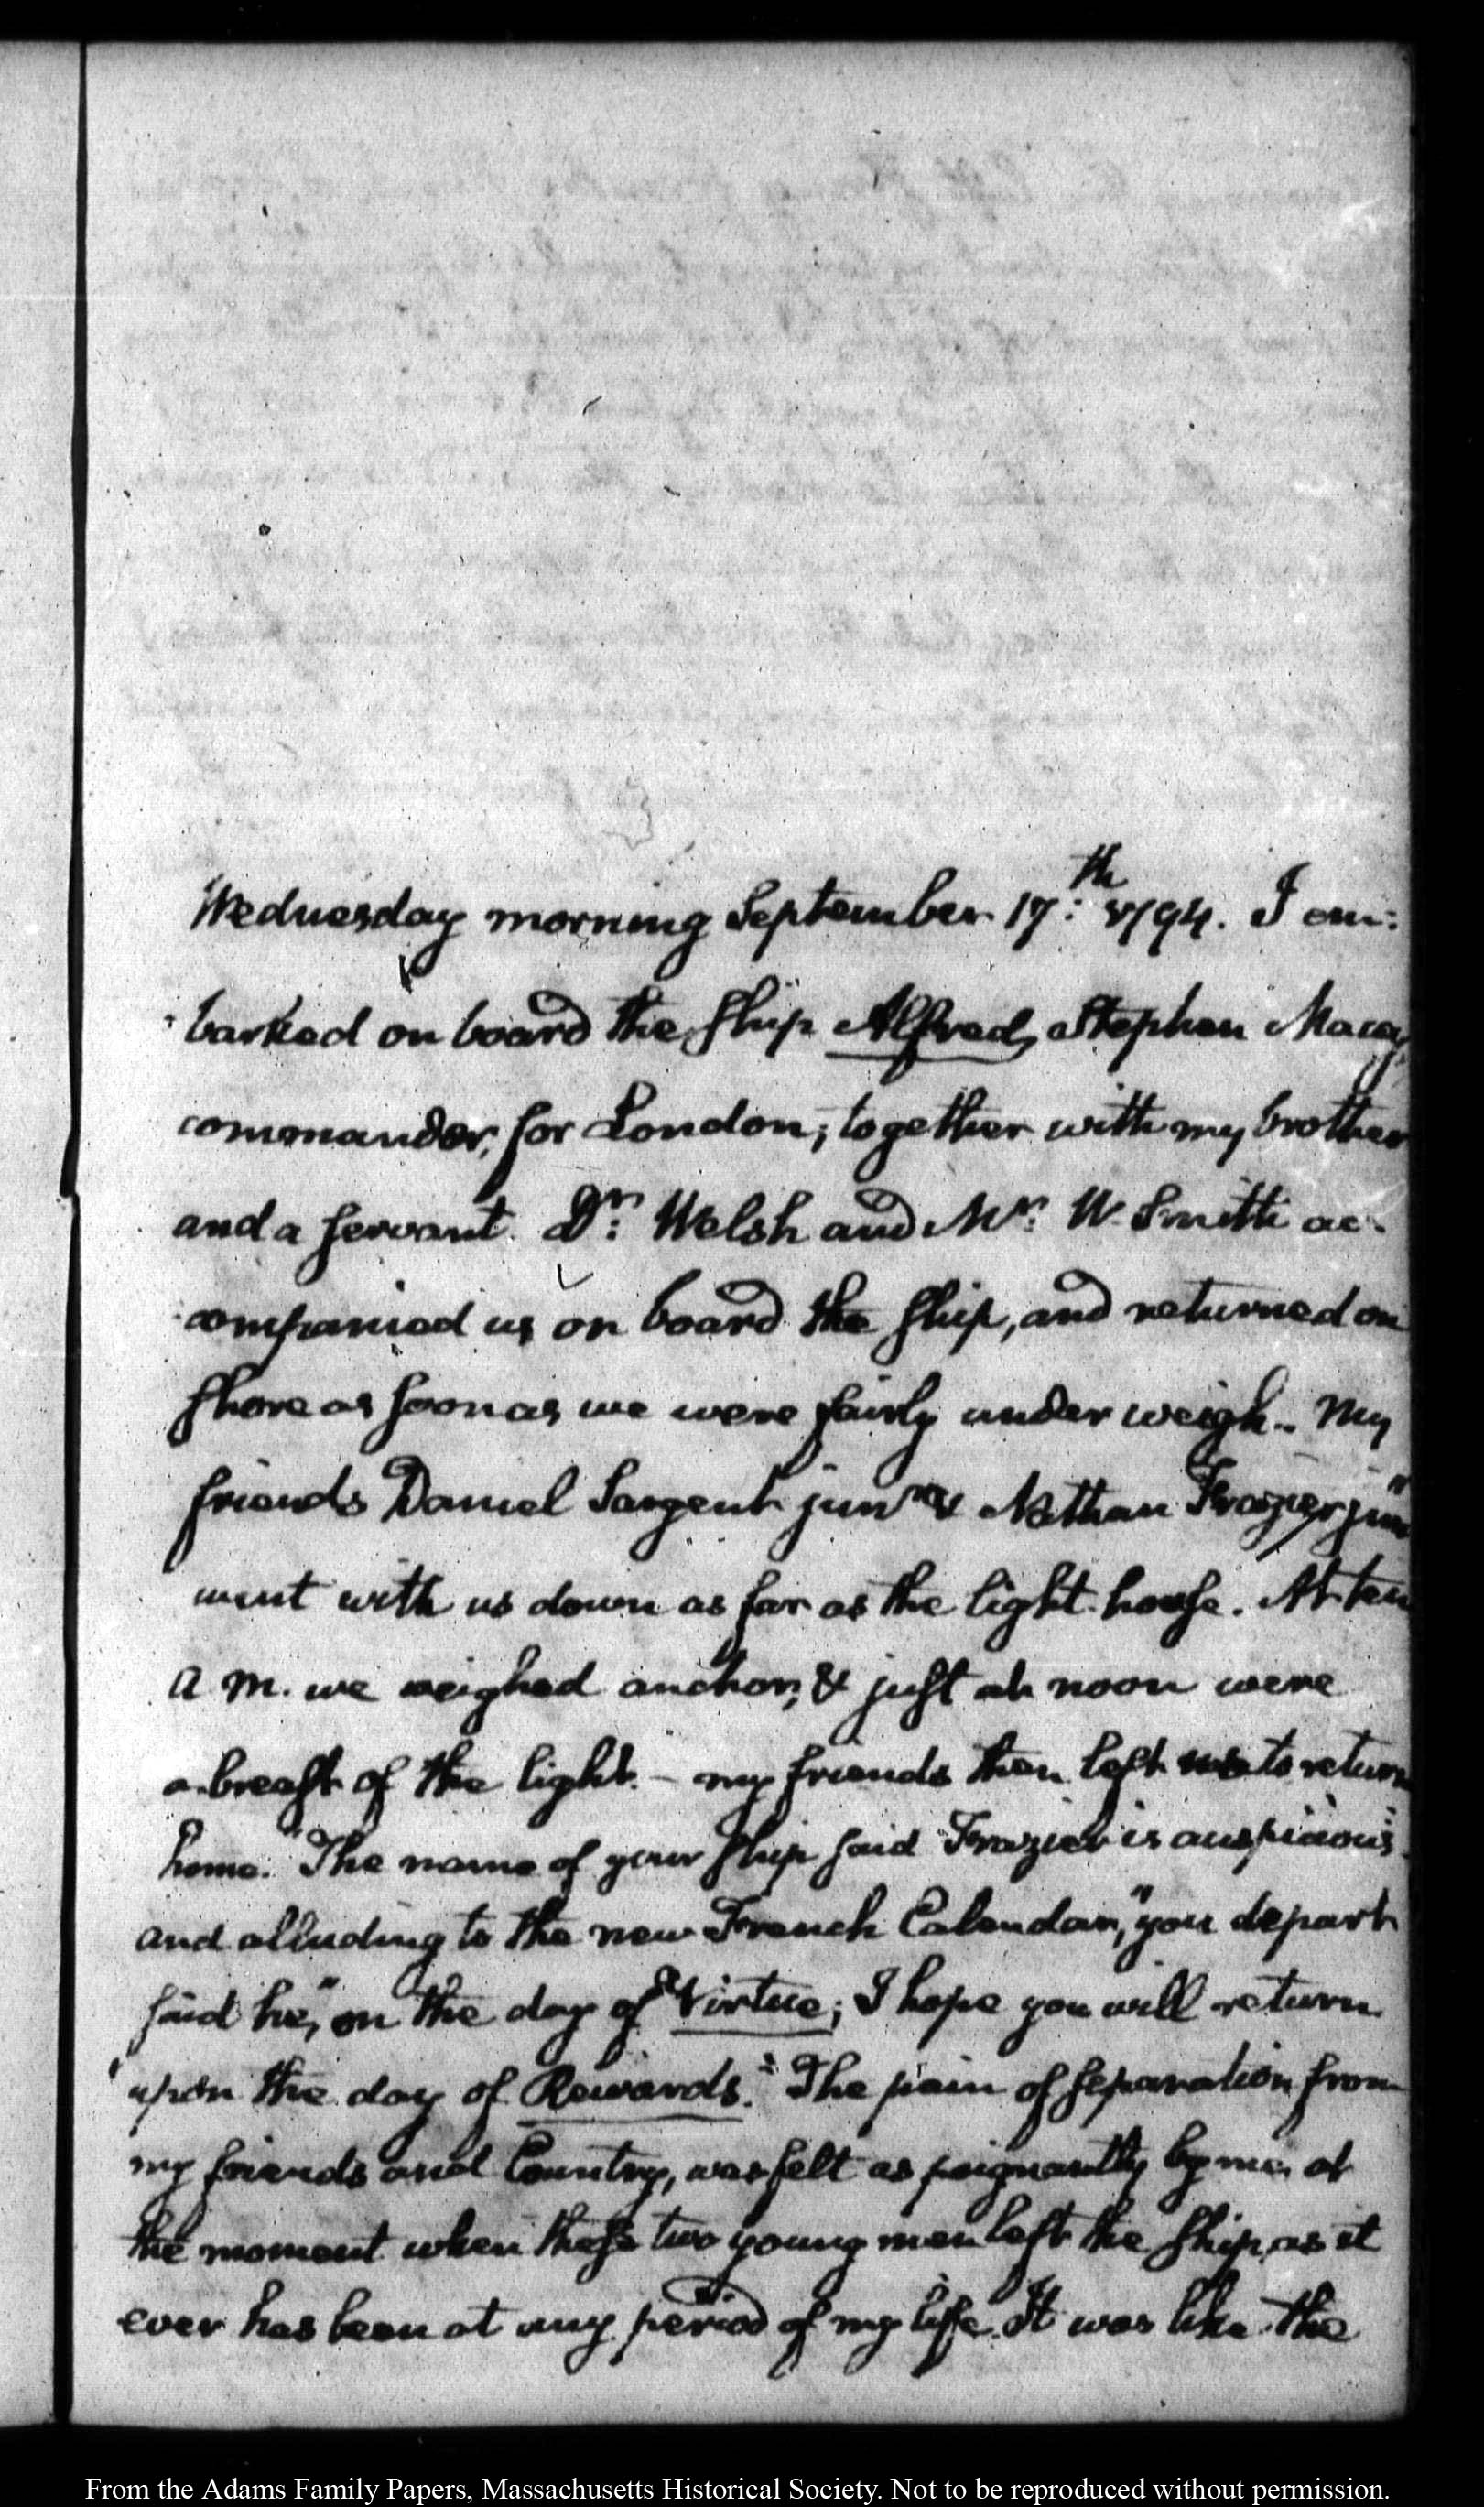 Wednesday morning September 17:th 1794. I em:
barked on board the ship Alfred, Stephen Macey
commander, for London; together with my brother
and a servant. Dr: Welsh and Mr: W. Smith ac-
companied us on board the ship, and returned on
shore as soon as we were fairly under weigh.. My
friends Daniel Sargent junr. & Nathan Frazier junr
went with us down as far as the light-house. At ten
A M. we weighed anchor, & just at noon were
a-breast of the light. — my friends then left us to return
home. "The name of your ship said Frazier is auspicious
and alluding to the new French Calendar, "you depart
said he, "on the day of Virtue; I hope you will return
"upon the day of Rewards." The pain of separation from
my friends and Country, was felt as poignantly by me, at
the moment when these two young men left the ship, as it
ever has been at any period of my life. It was like the
From the Adams Family Papers, Massachusetts Historical Society. Not to be reproduced without permission.